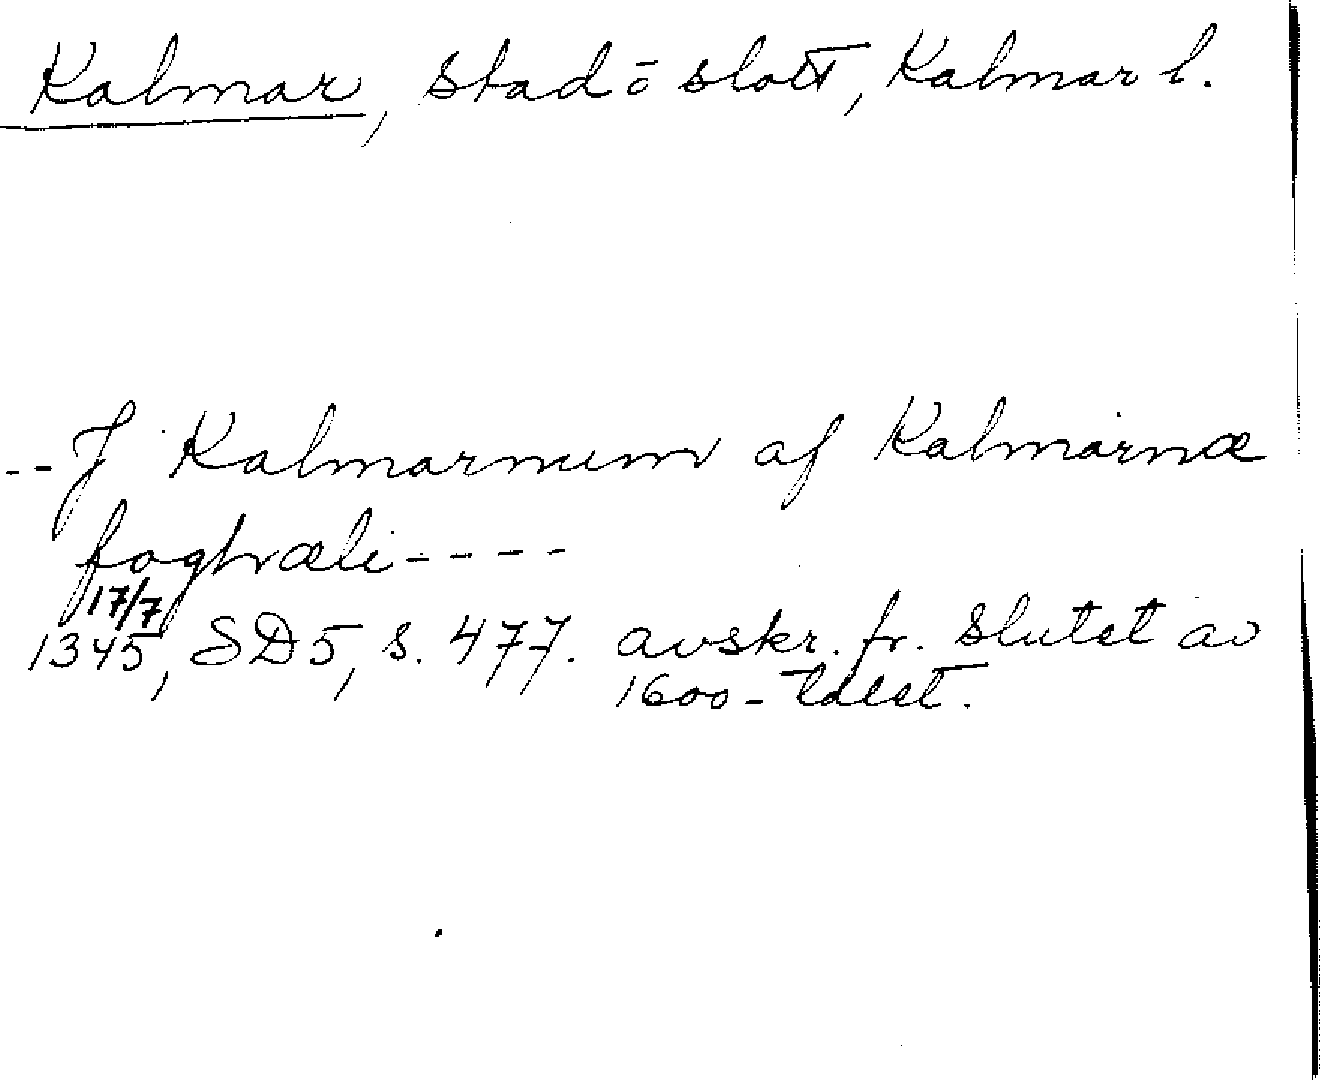 Kalmar, stad o slott, Kalmar l.
-- J Kalmarnum af Kalmarnæ
foghræli ----
17/7
1345, SD5, s. 477. avskr. fr. slutet av
1600-talet.